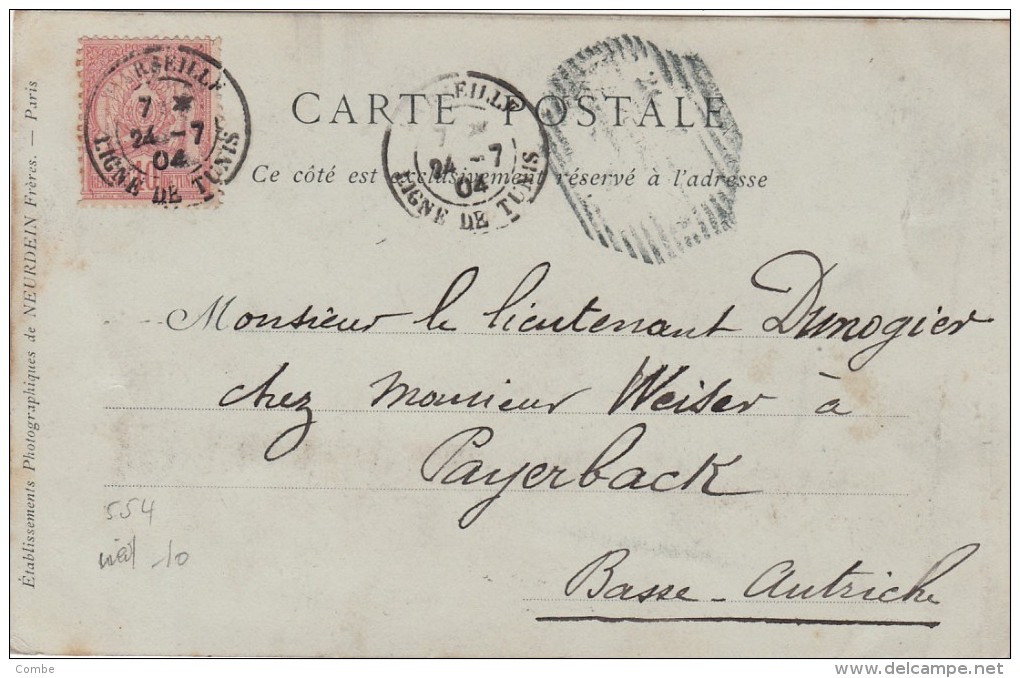 MARSEILLE
7
24 - 7
04
LIGNE DE TUNIS
10
SEILLE
7
24 - 7
04
LIGNE DE TUNIS
CARTE POSTALE
Ce côté est exclusivement réservé à l'adresse
Monsieur le lieutenant Dunogier
chez Monsieur Weiser à
Payerback
Basse-Autriche
Établissements Photographiques de NEURDEIN Frères. — Paris
554
-10
Combe
http://www.delcampe.net